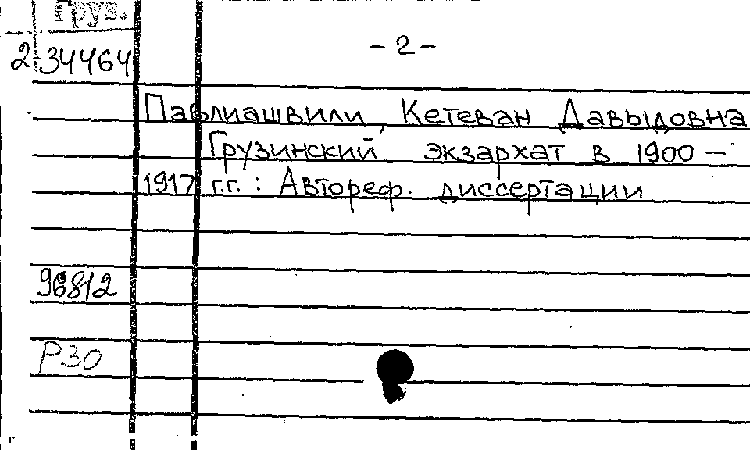 Груз.
- 2 -
2 34464
Павлиашвили, Кетеван Давыдовна
Грузинский экзархат в 1900 –
1917 г.г. : Автореф. диссертации
96812
Р30